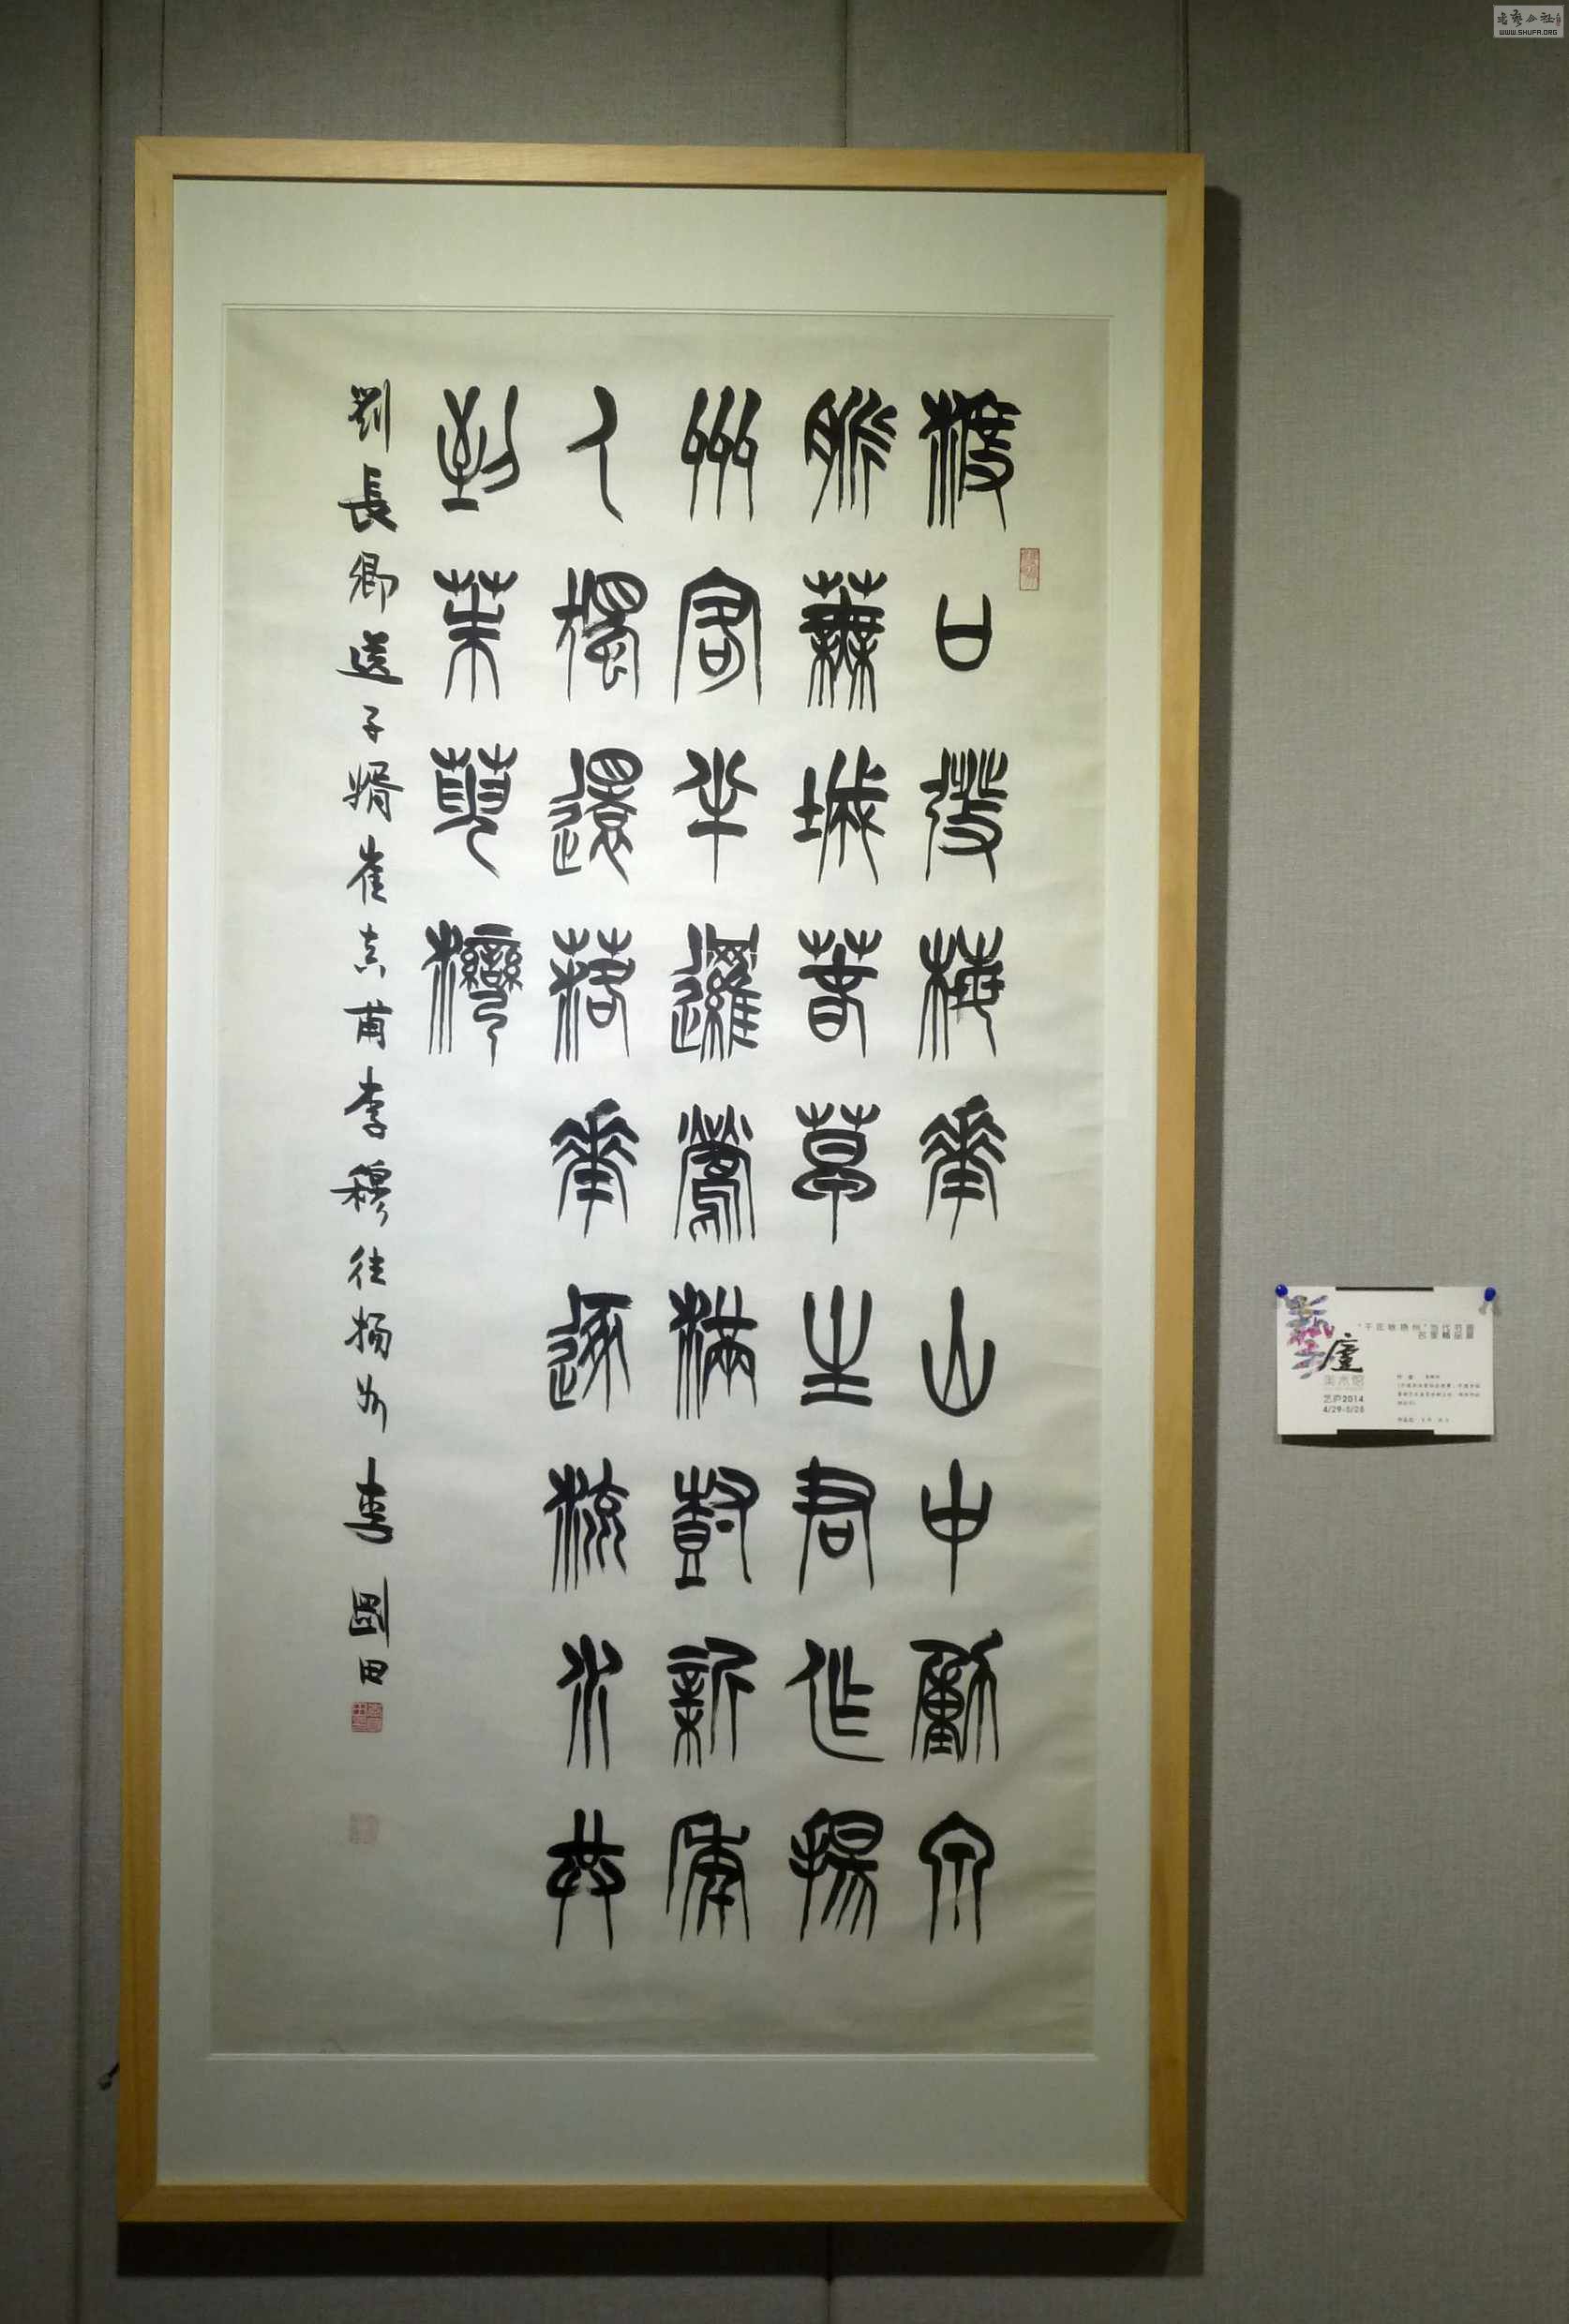 渡口發梅華山中動泉
脈蕪城春草生君作揚
州客半邏鶯滿樹新年
人獨還落華逐流水共
到茱萸灣
劉長卿送子婿崔真甫李穆往揚州 李剛田
廬
美术馆
艺庐2014
4/29-5/28
"千年咏扬州"当代书画
名家精品展
WWW.SHUFA.ORG